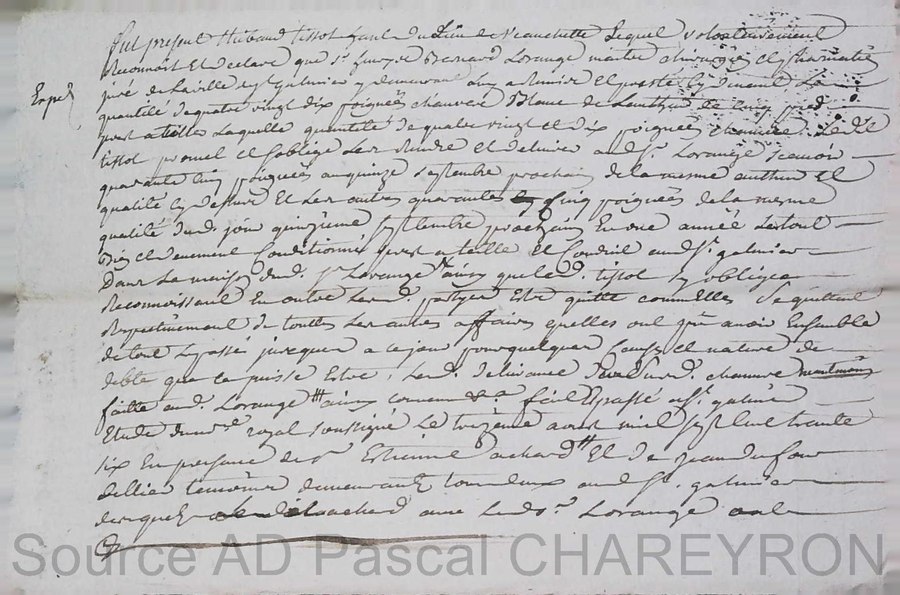 fut present thibaud tissot du lieu de veauchette lequel volontairement
Reconnoit et declare que sr Bernard Lorange maitre chirurgien
Expedié
juré de la ville de st Galmier y demeurant a remis et presté la
quantité de quatre vingt dix poignées chanvre blanc de
pret a tiller laquelle quantité de quatre vingt et dix poignées chanvre led.
tissot promet et s'oblige de rendre et delivrer aud. sr. Lorange scavoir
quarante cinq poignées au quinze septembre prochain de la mesme et
qualité cy dessus Et les autres quarante cinq poignées de la mesme
qualité dud. jour quinzieme septembre prochain en une année le tout
bien et deuement conditionné pret a teille et conduit aud. st. galmier
Dans la maison dud. sr Lorange ainsy que led. tissot s'y oblige
Reconnoissant en outre lesd. partyes estre quitte comme elles se quittent
respectivement de touttes les autres affaires qu'elles ont pu avoir ensemble
de tout le passé jusques a ce jour pour quelque cause et nature de
debte que ce puisse estre, lad. delivrance dud. chanvre
faitte aud. Lorange ainsy convenu &a fait et passé a st. galmier
Etude du nre royal soussigné le treizieme aoust mil sept cent trante
six En presence de sr Estienne achard Et de jean dufour
sellier temoins demeurants tous deux aud. st. galmier
desquels led. achard avec led. sr. Lorange ont
Source AD Pascal CHAREYRON